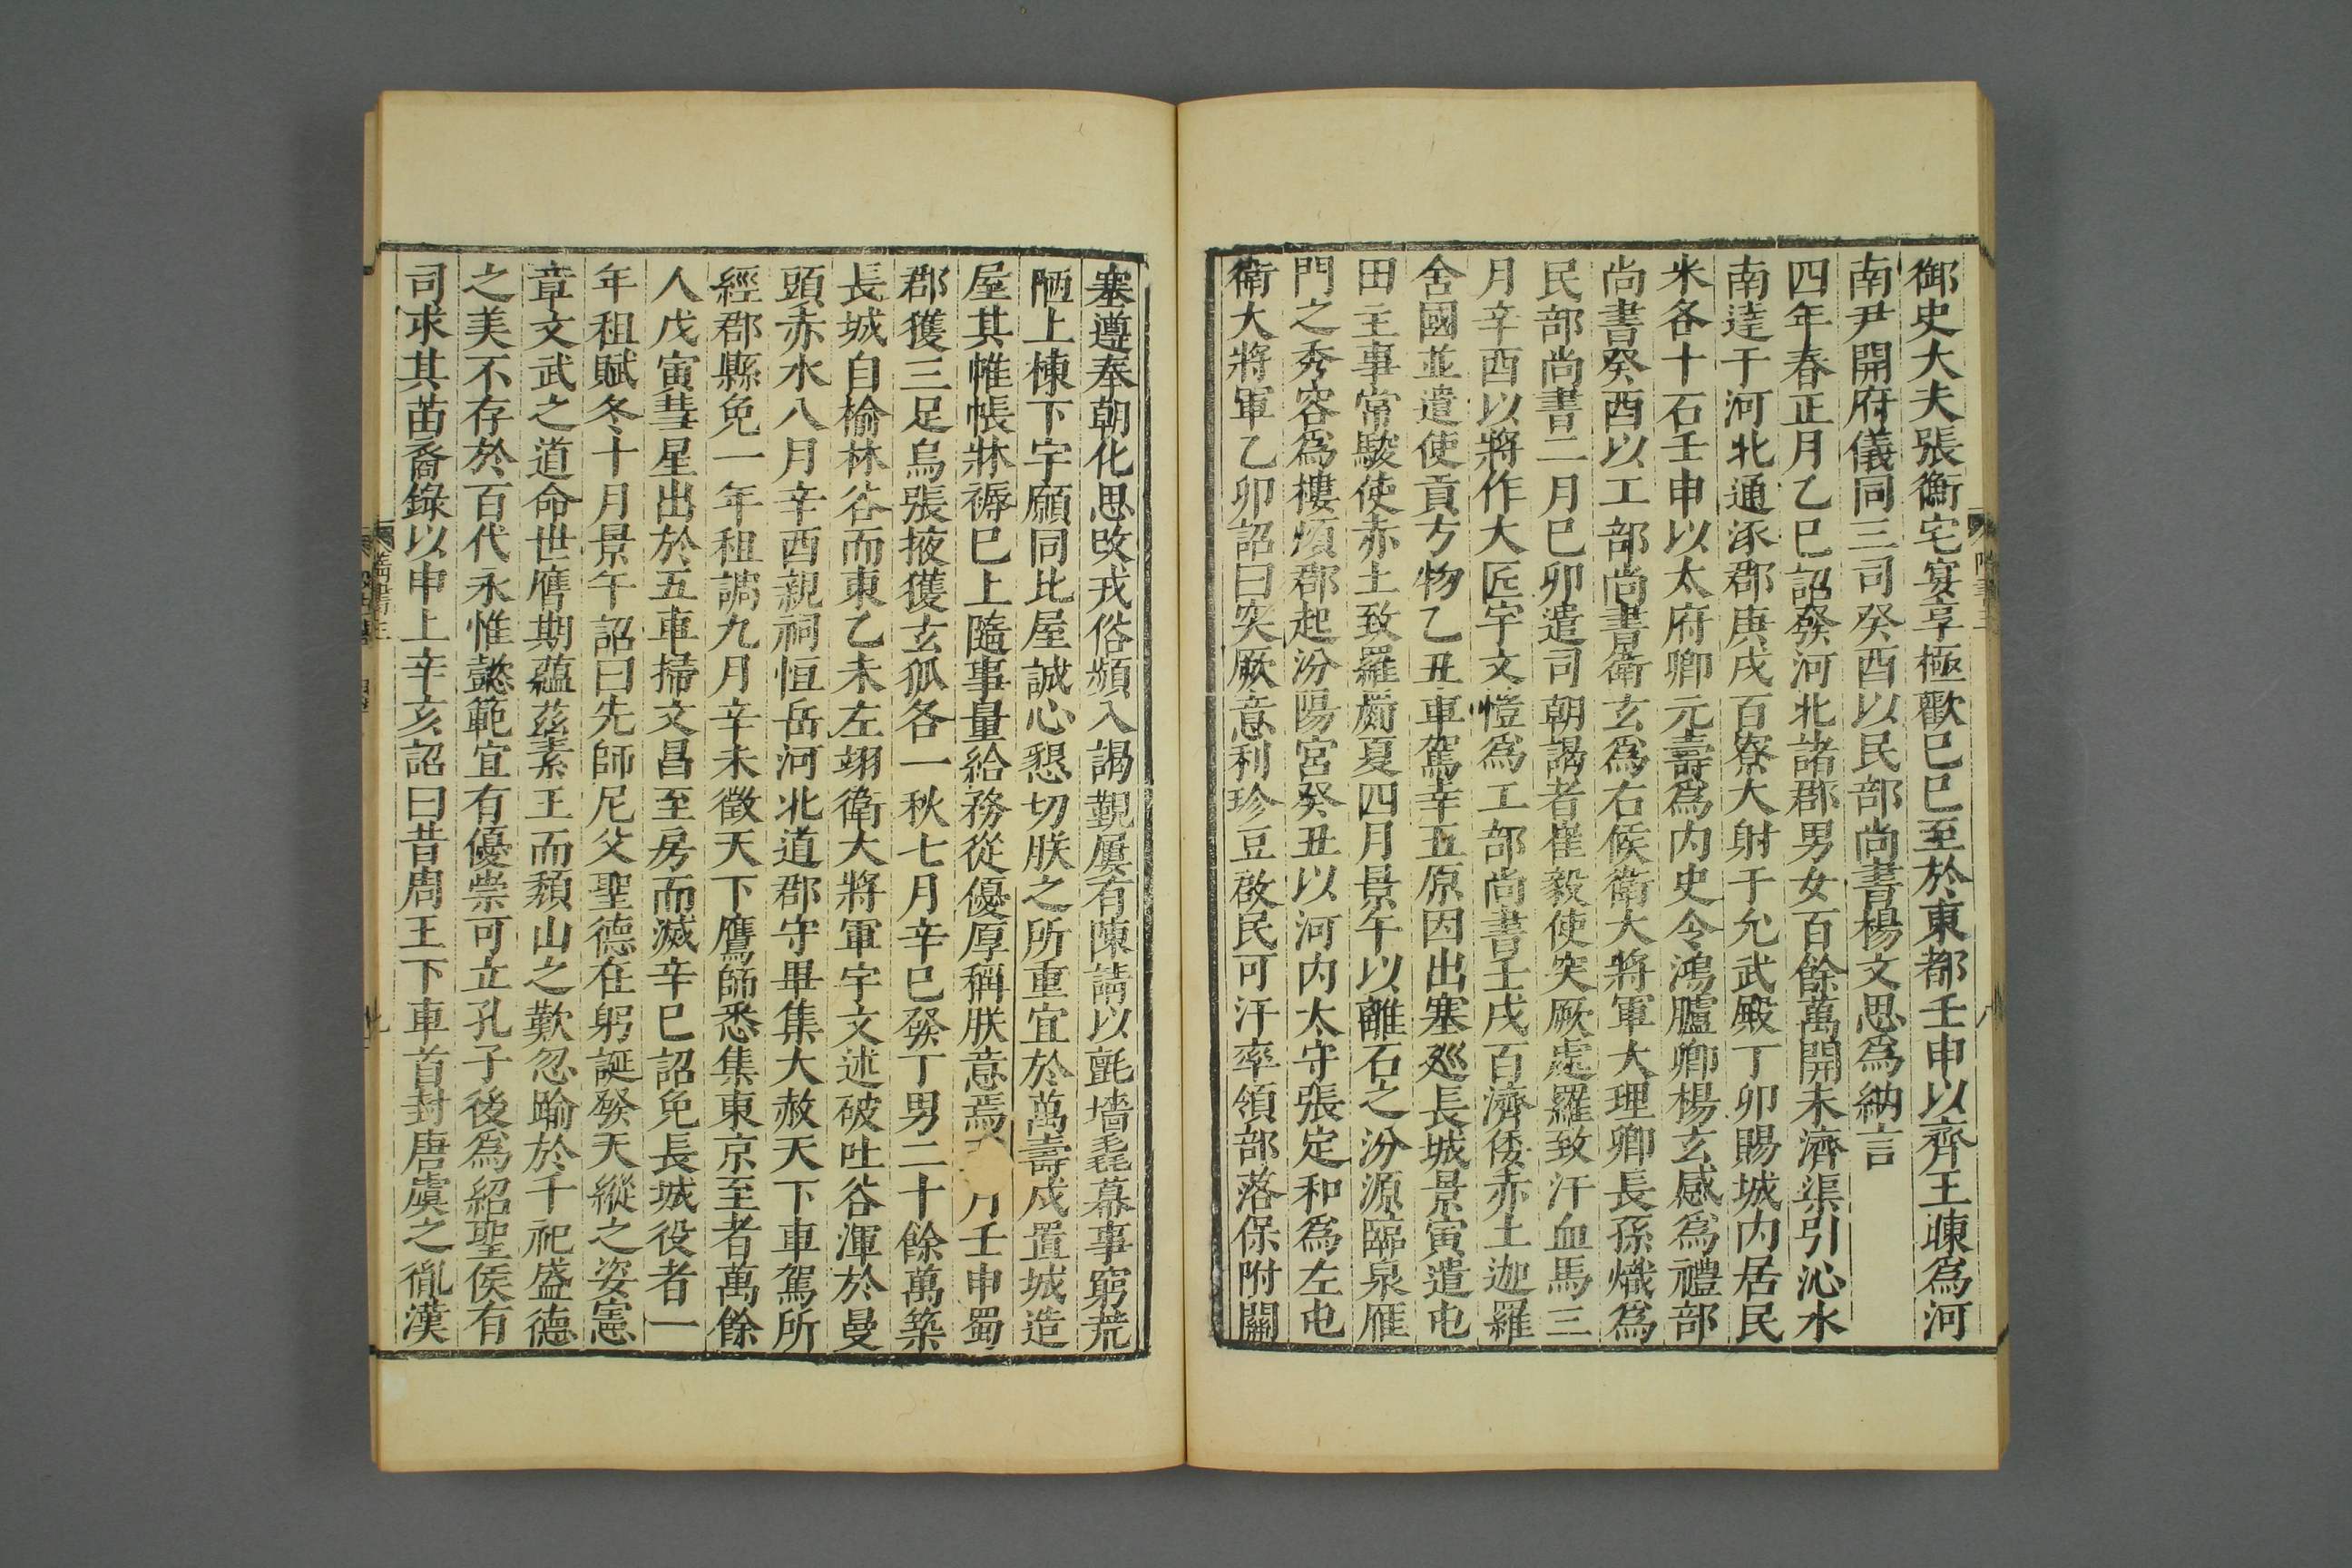 御史大夫張衡宅宴享極歡巳巳至於東都壬申以齊王暕爲河
南尹開府儀同三司癸酉以民部尚書楊文思爲納言
四年春正月乙巳詔發河北諸郡男女百餘萬開永濟渠引沁水
南達于河北通涿郡庚戌百寮大射于允武殿丁卯賜城内居民
米各十石壬申以太府卿元壽爲内史令鴻臚卿楊玄感爲禮部
尚書癸酉以工部尚書衛玄爲右候衛大將軍大理卿長孫熾爲
民部尚書二月巳卯遣司朝謁者崔毅使突厥處羅致汗血馬三
月辛酉以將作大匠宇文愷爲工部尚書壬戌百濟倭赤土迦羅
舍國並遣使貢方物乙丑車駕幸五原因出塞巡長城景寅遣屯
田主事常駿使赤土致羅罽夏四月景午以離石之汾源臨泉雁
門之秀容爲樓煩郡起汾陽宮癸丑以河内太守張定和爲左屯
衛大將軍乙卯詔曰突厥意利珍豆啟民可汗率領部落保附關
塞遵奉朝化思改戎俗頻入謁覲屢有陳請以氈墻毳幕事窮荒
陋上棟下宇願同比屋誠心懇切朕之所重宜於萬壽戍置城造
屋其帷帳牀褥已上隨事量給務從優厚稱朕意焉 月壬申蜀
郡獲三足烏張掖獲玄狐各一秋七月辛巳發丁男二十餘萬築
長城自榆林谷而東乙未左翊衛大將軍宇文述破吐谷渾於曼
頭赤水八月辛酉親祠恒岳河北道郡守畢集大赦天下車駕所
經郡縣免一年租調九月辛未徵天下鷹師悉集東京至者萬餘
人戊寅彗星出於五車掃文昌至房而滅辛巳詔免長城役者一
年租賦冬十月景午詔曰先師尼父聖德在躬誕發天縱之姿憲
章文武之道命世膺期蘊茲素王而頹山之歎忽踰於千祀盛德
之美不存於百代永惟懿範宜有優崇可立孔子後爲紹聖侯有
司求其苗裔錄以申上辛亥詔曰昔周王下車首封唐虞之胤漢